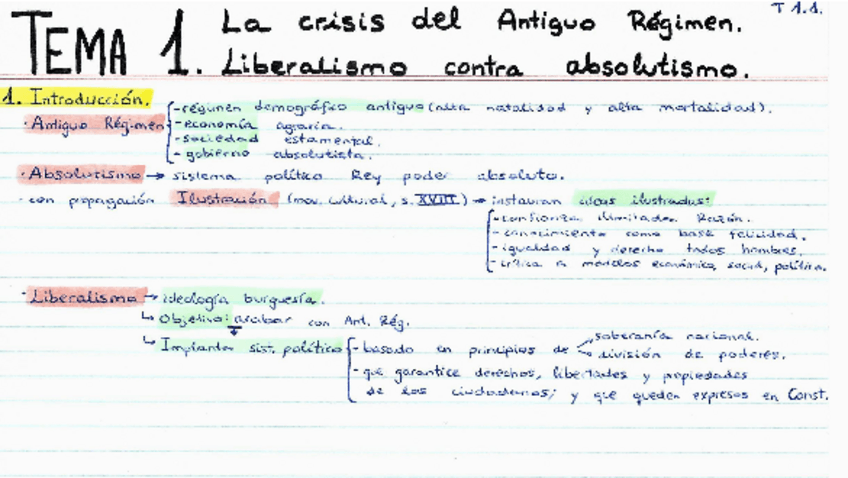 T 1.1.
TEMA 1. La crisis del Antiguo Régimen.
Liberalismo contra absolutismo.
1. Introducción.
· Antiguo Régimen
- régimen demográfico antiguo (alta natalidad y alta mortalidad).
- economía agraria.
- sociedad estamental.
- gobierno absolutista.
· Absolutismo → sistema político Rey poder absoluto.
· con propagación Ilustración (mov. cultural, s. XVIII) → instauran ideas ilustradas:
- confianza ilimitada Razón.
- conocimiento como base felicidad.
- igualdad y derecho todos hombres.
- crítica a modelos económico, social, política.
· Liberalismo → ideología burguesía.
↳ Objetivo: acabar con Ant. Rég.
↳ Implantar sist. político
- basado en principios de
soberanía nacional.
división de poderes.
- que garantice derechos, libertades y propiedades
de los ciudadanos; y que queden expresos en Const.